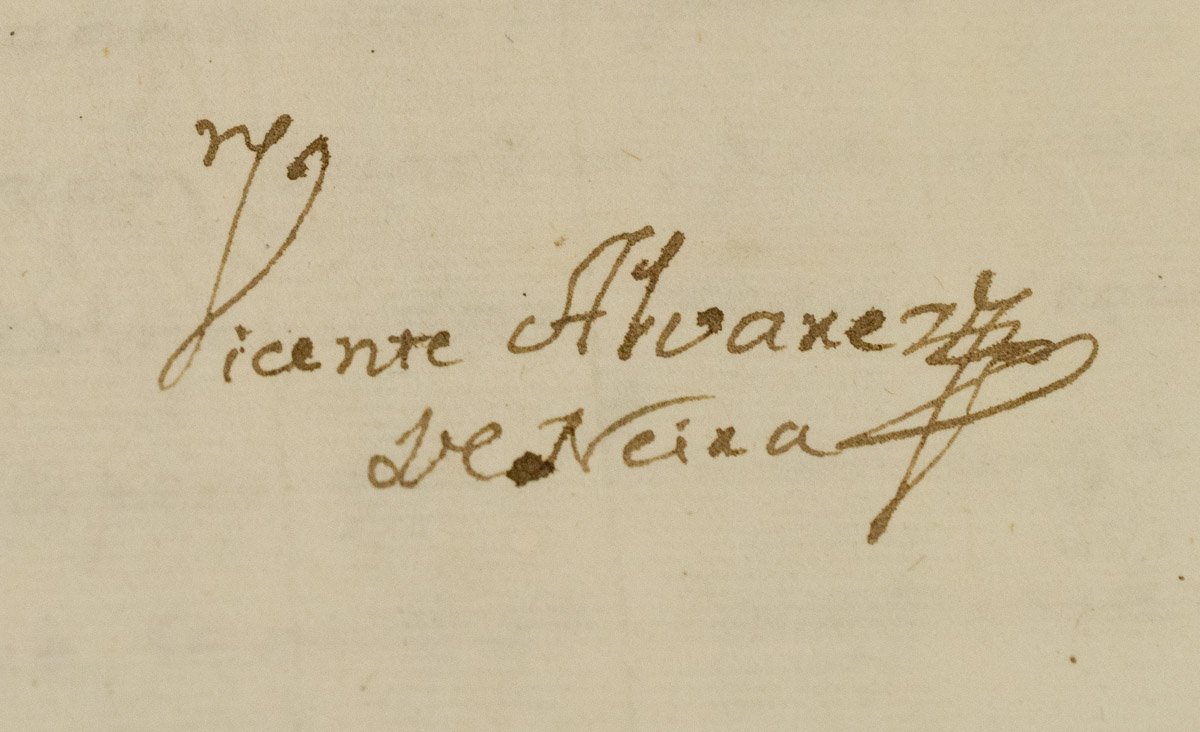 Vicente Alvarez
De Neira